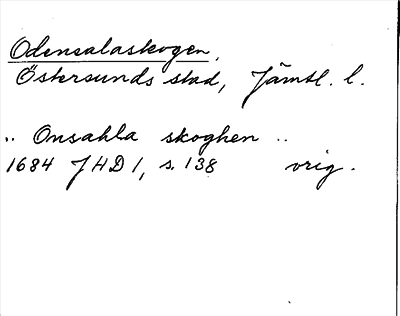 Odensalaskogen,
Östersunds stad, Jämtl. l.
.. Onsahla skoghen ..
1684 JHD 1, s. 138 vrig.